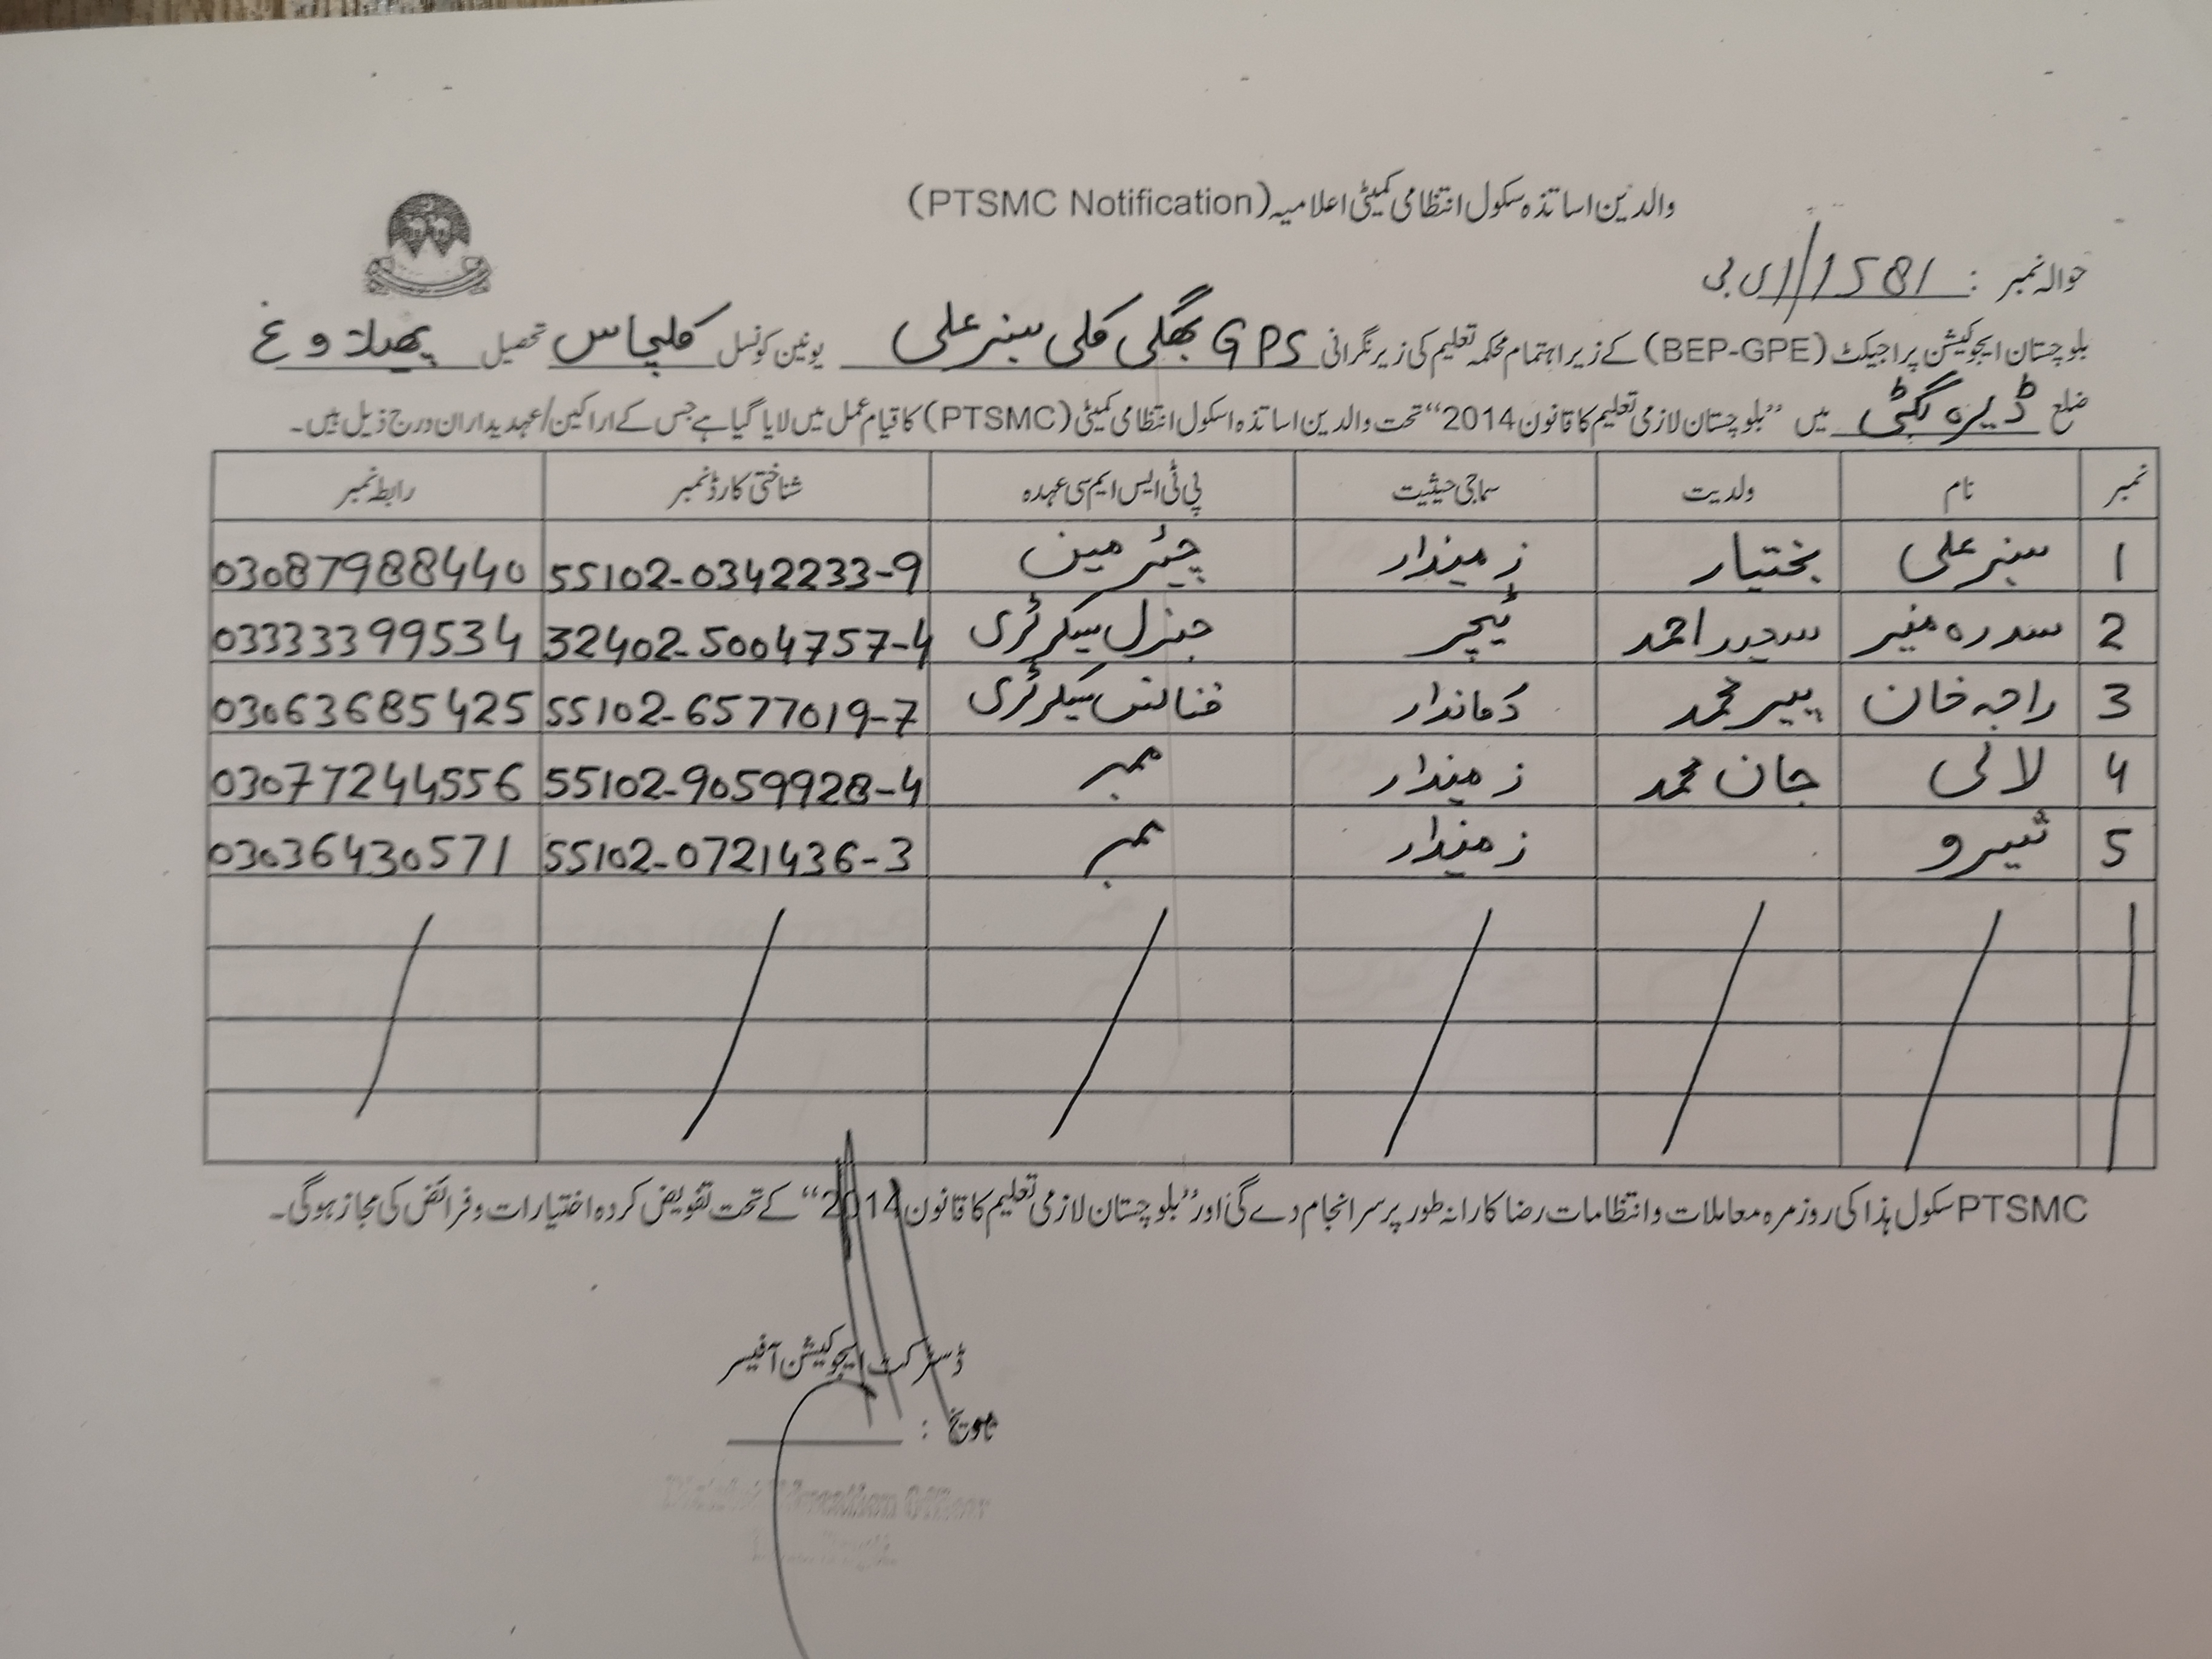 والدین اساتذہ سکول انتظامی کمیٹی اعلامیہ (PTSMC Notification)
حوالہ نمبر : 1581/
بلوچستان ایجوکیشن پراجیکٹ (BEP-GPE) کے زیر اہتمام محکمہ تعلیم کی زیر نگرانی GPS بھگی کلی سبز علی یونین کونسل کلچاس تحصیل پھیلاوغ
ضلع ڈیرہ بگٹی میں "بلوچستان لازمی تعلیم کا قانون 2014" تحت والدین اساتذہ اسکول انتظامی کمیٹی (PTSMC) کا قیام عمل میں لایا گیا ہے جس کے اراکین/عہدیداران درج ذیل ہیں۔
نمبر نام ولدیت سماجی حیثیت پی ٹی ایس ایم سی عہدہ شناختی کارڈ نمبر رابطہ نمبر
1 سبز علی بختیار زمیندار چیئرمین 55102-0342233-9 03087988440
2 سدرہ منیر احمد ٹیچر جنرل سیکرٹری 32402-5004757-4 03333399534
3 راجہ خان پیر محمد دکاندار فنانس سیکرٹری 55102-6577019-7 03063685425
4 لالی جان محمد زمیندار ممبر 55102-9059928-4 03077244556
5 زمیندار ممبر 55102-0721436-3 03036430571
PTSMC سکول ہذا کی روزمرہ معاملات و انتظامات رضا کارانہ طور پر سرانجام دے گی اور "بلوچستان لازمی تعلیم کا قانون 2014" کے تحت تفویض کردہ اختیارات و فرائض کی مجاز ہوگی۔
ڈسٹرکٹ ایجوکیشن آفیسر
تاریخ :
District Education Officer